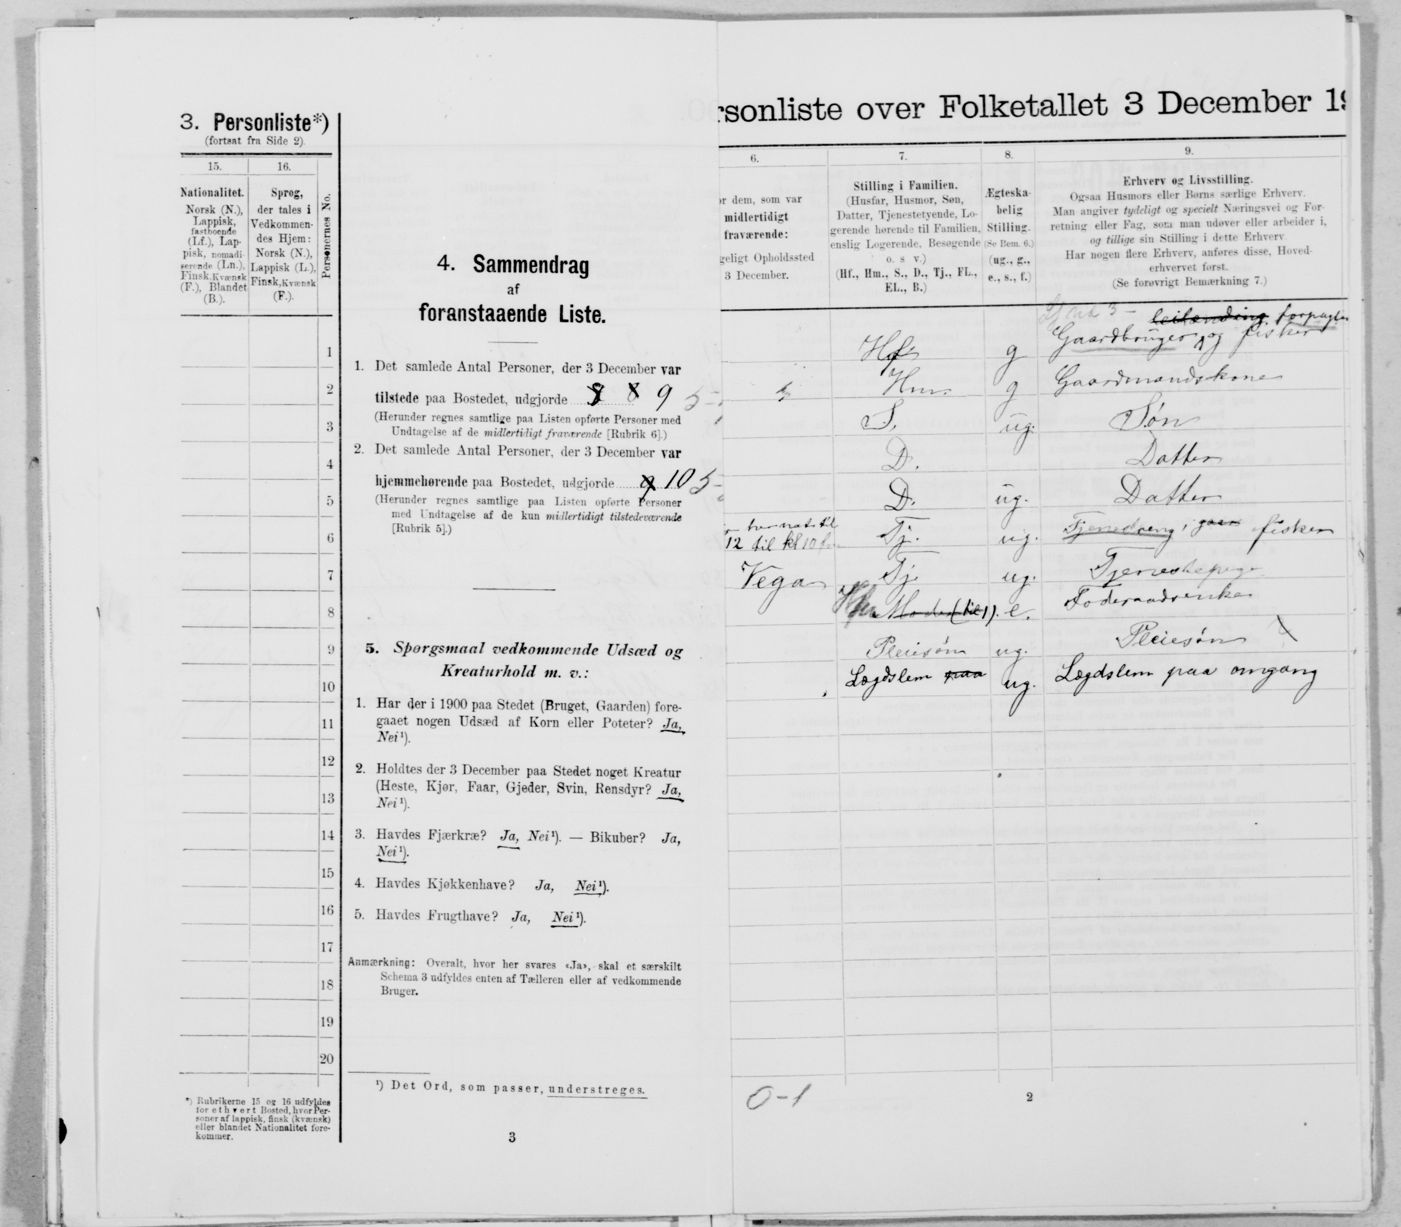 3. Personliste*)
(fortsat fra Side 2).
15.
16.
Nationalitet.
Norsk (N.),
Lappisk,
fastboende
(Lf.), Lap-
pisk, nomadi-
serende (Ln.),
Finsk, Kvænsk
(F.), Blandet
(B.).
Sprog,
der tales i
Vedkommen-
des Hjem:
Norsk (N.),
Lappisk (L.),
Finsk, Kvænsk
(F.).
Personernes No.
1
2
3
4
5
6
7
8
9
10
11
12
13
14
15
16
17
18
19
20
*) Rubrikerne 15 og 16 udfyldes
for ethvert Bosted, hvor Per-
soner af lappisk, finsk (kvænsk)
eller blandet Nationalitet fore-
kommer.
4. Sammendrag
af
foranstaaende Liste.
1. Det samlede Antal Personer, der 3 December var
tilstede paa Bostedet, udgjorde 8 9 5
(Herunder regnes samtlige paa Listen opførte Personer med
Undtagelse af de midlertidigt fraværende [Rubrik 6].)
2. Det samlede Antal Personer, der 3 December var
hjemmehørende paa Bostedet, udgjorde 9 10 5
(Herunder regnes samtlige paa Listen opførte Personer
med Undtagelse af de kun midlertidigt tilstedeværende
[Rubrik 5].)
5. Spørgsmaal vedkommende Udsæd og
Kreaturhold m. v.:
1. Har der i 1900 paa Stedet (Bruget, Gaarden) fore-
gaaet nogen Udsæd af Korn eller Poteter? Ja,
Nei¹).
2. Holdtes der 3 December paa Stedet noget Kreatur
(Heste, Kjør, Faar, Gjeder, Svin, Rensdyr? Ja,
Nei¹).
3. Havdes Fjærkræ? Ja, Nei¹). — Bikuber? Ja,
Nei¹).
4. Havdes Kjøkkenhave? Ja, Nei¹).
5. Havdes Frugthave? Ja, Nei¹).
Anmærkning: Overalt, hvor her svares «Ja», skal et særskilt
Schema 3 udfyldes enten af Tælleren eller af vedkommende
Bruger.
¹) Det Ord, som passer, understreges.
3
rsonliste over Folketallet 3 December 19
6.
7.
8.
9.
or dem, som var
midlertidigt
fraværende:
geligt Opholdssted
3 December.
Stilling i Familien.
(Husfar, Husmor, Søn,
Datter, Tjenestetyende, Lo-
gerende hørende til Familien,
enslig Logerende, Besøgende
o. s v.)
(Hf., Hm., S., D., Tj., FL.,
EL., B.)
Ægteska-
belig
Stilling.
(Se Bem. 6.)
(ug., g.,
e., s., f.)
Erhverv og Livsstilling.
Ogsaa Husmors eller Børns særlige Erhverv.
Man angiver tydeligt og specielt Næringsvei og For-
retning eller Fag, som man udøver eller arbeider i,
og tillige sin Stilling i dette Erhverv
Har nogen flere Erhverv, anføres disse, Hoved-
erhvervet først.
(Se forøvrigt Bemærkning 7.)
leilænding forpagter
Hf. g Gaardbruger og fisker
Hm. g Gaardmandskone
S. ug. Søn
D. Datter
D. ug. Datter
12 til kl 10 Tj. ug. fisker
Vega Tj. ug. Tjenestepige
Hm Moder (til 1). e. Foderaadsenke
Pleiesøn ug. Pleiesøn
Lægdslem paa ug. Lægdslem paa omgang
0-1
2